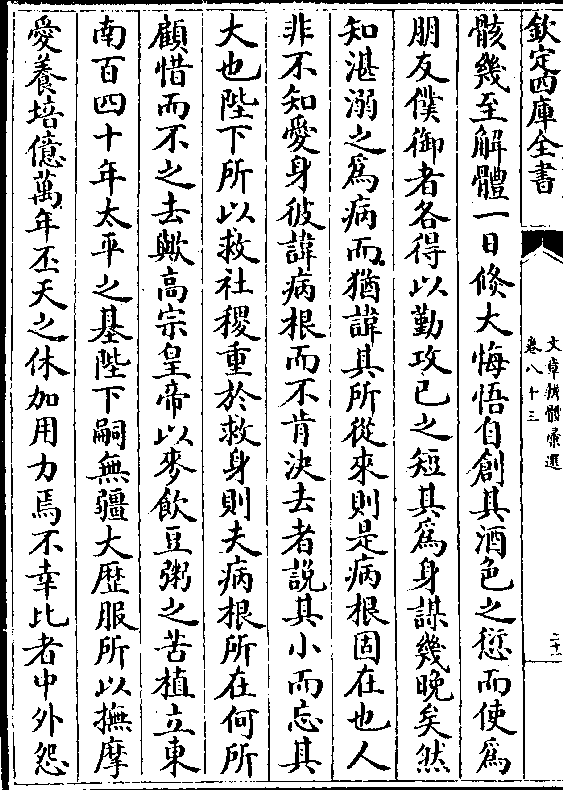 欽定四庫全書
文章辨體彙選
卷八十三
二十一
骸幾至解體一日倏大悔悟自創其酒色之愆而使為
朋友僕御者各得以勤攻已之短其為身謀幾晚矣然
知湛溺之為病而猶諱其所從來則是病根固在也人
非不知愛身彼諱病根而不肯決去者說其小而忘其
大也陛下所以救社稷重於救身則夫病根所在何所
顧惜而不之去歟高宗皇帝以麥飲豆粥之苦植立東
南百四十年太平之基陛下嗣無疆大歷服所以撫摩
愛養培億萬年丕天之休加用力焉不幸比者中外怨